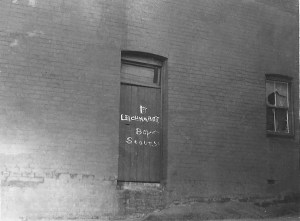 1st
LEICHHARDT
Boy
Scouts